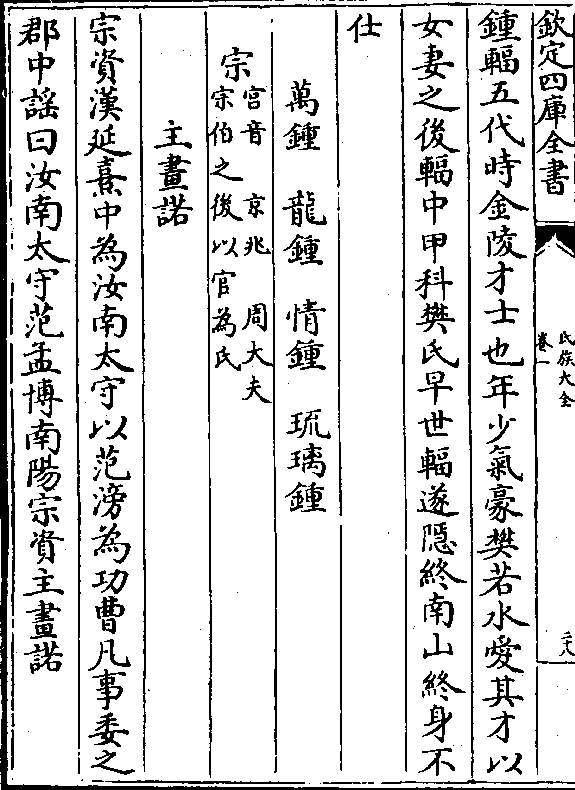 欽定四庫全書
氏族大全
卷一
二八
鍾輻五代時金陵才士也年少氣豪樊若水愛其才以
女妻之後輻中甲科樊氏早世輻遂隱終南山終身不
仕
萬鍾 龍鍾 情鍾 琉璃鍾
宗
宮音 京兆 周大夫
宗伯之後以官為氏
主畫諾
宗資漢延熹中為汝南太守以范滂為功曹凡事委之
郡中謡曰汝南太守范孟博南陽宗資主畫諾